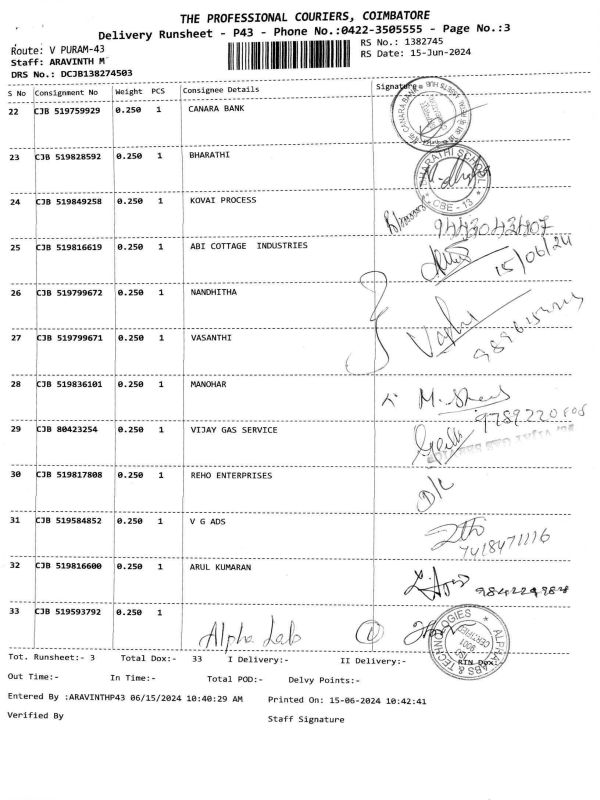 THE PROFESSIONAL COURIERS, COIMBATORE
Delivery Runsheet - P43 - Phone No.:0422-3505555 - Page No.:3
Route: V PURAM-43
RS No.: 1382745
Staff: ARAVINTH M
RS Date: 15-Jun-2024
DRS No.: DCJB138274503
S No Consignment No Weight PCS Consignee Details Signature
22 CJB 519759929 0.250 1 CANARA BANK
CANARA BANK
23 CJB 519828592 0.250 1 BHARATHI
BHARATHI SCHOOL
CBE - 13
24 CJB 519849258 0.250 1 KOVAI PROCESS
9443043407
25 CJB 519816619 0.250 1 ABI COTTAGE INDUSTRIES
15/06/24
26 CJB 519799672 0.250 1 NANDHITHA
27 CJB 519799671 0.250 1 VASANTHI
28 CJB 519836101 0.250 1 MANOHAR
29 CJB 80423254 0.250 1 VIJAY GAS SERVICE
30 CJB 519817808 0.250 1 REHO ENTERPRISES
D/L
31 CJB 519584852 0.250 1 V G ADS
7418471116
32 CJB 519816600 0.250 1 ARUL KUMARAN
33 CJB 519593792 0.250 1
Alpha Lab
ALPHA LABS & TECHNOLOGIES
ISO 9001 CERTIFIED
Tot. Runsheet:- 3 Total Dox:- 33 I Delivery:- II Delivery:- RTN Dox:
Out Time:- In Time:- Total POD:- Delvy Points:-
Entered By :ARAVINTHP43 06/15/2024 10:40:29 AM Printed On: 15-06-2024 10:42:41
Verified By Staff Signature